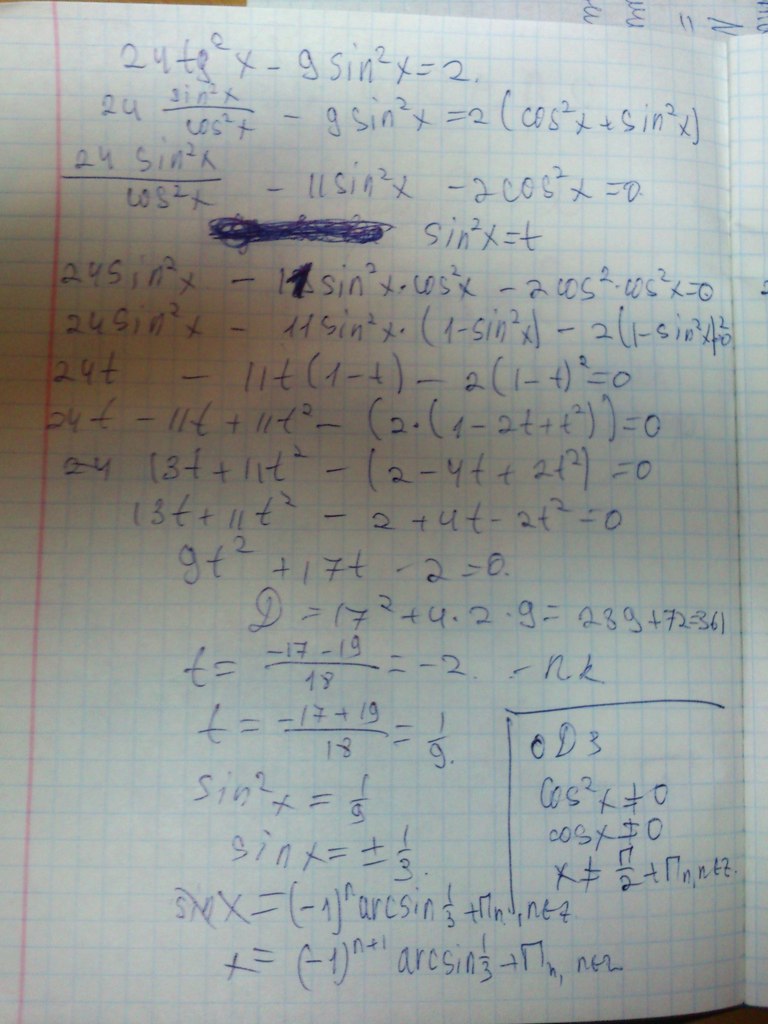 24 tg²x - 9 sin²x = 2.
24 sin²x/cos²x - 9 sin²x = 2 (cos²x + sin²x)
24 sin²x/cos²x - 11 sin²x - 2cos²x = 0
sin²x = t
24 sin²x - 11 sin²x · cos²x - 2cos² · cos²x = 0
24 sin²x - 11 sin²x · (1 - sin²x) - 2(1 - sin²x)² = 0
24t - 11t(1 - t) - 2(1 - t)² = 0
24t - 11t + 11t² - (2·(1 - 2t + t²)) = 0
24 13t + 11t² - (2 - 4t + 2t²) = 0
13t + 11t² - 2 + 4t - 2t² = 0
9t² + 17t - 2 = 0.
D = 17² + 4·2·9 = 289 + 72 = 361
t = (-17 - 19)/18 = -2. - п.к
t = (-17 + 19)/18 = 1/9.
ОДЗ
cos²x ≠ 0
cosx ≠ 0
x ≠ П/2 + Пn, n∈z.
sin²x = 1/9
sin x = ± 1/3.
x = (-1)ⁿ arcsin 1/3 + Пn, n∈z
x = (-1)ⁿ⁺¹ arcsin 1/3 + Пn, n∈z